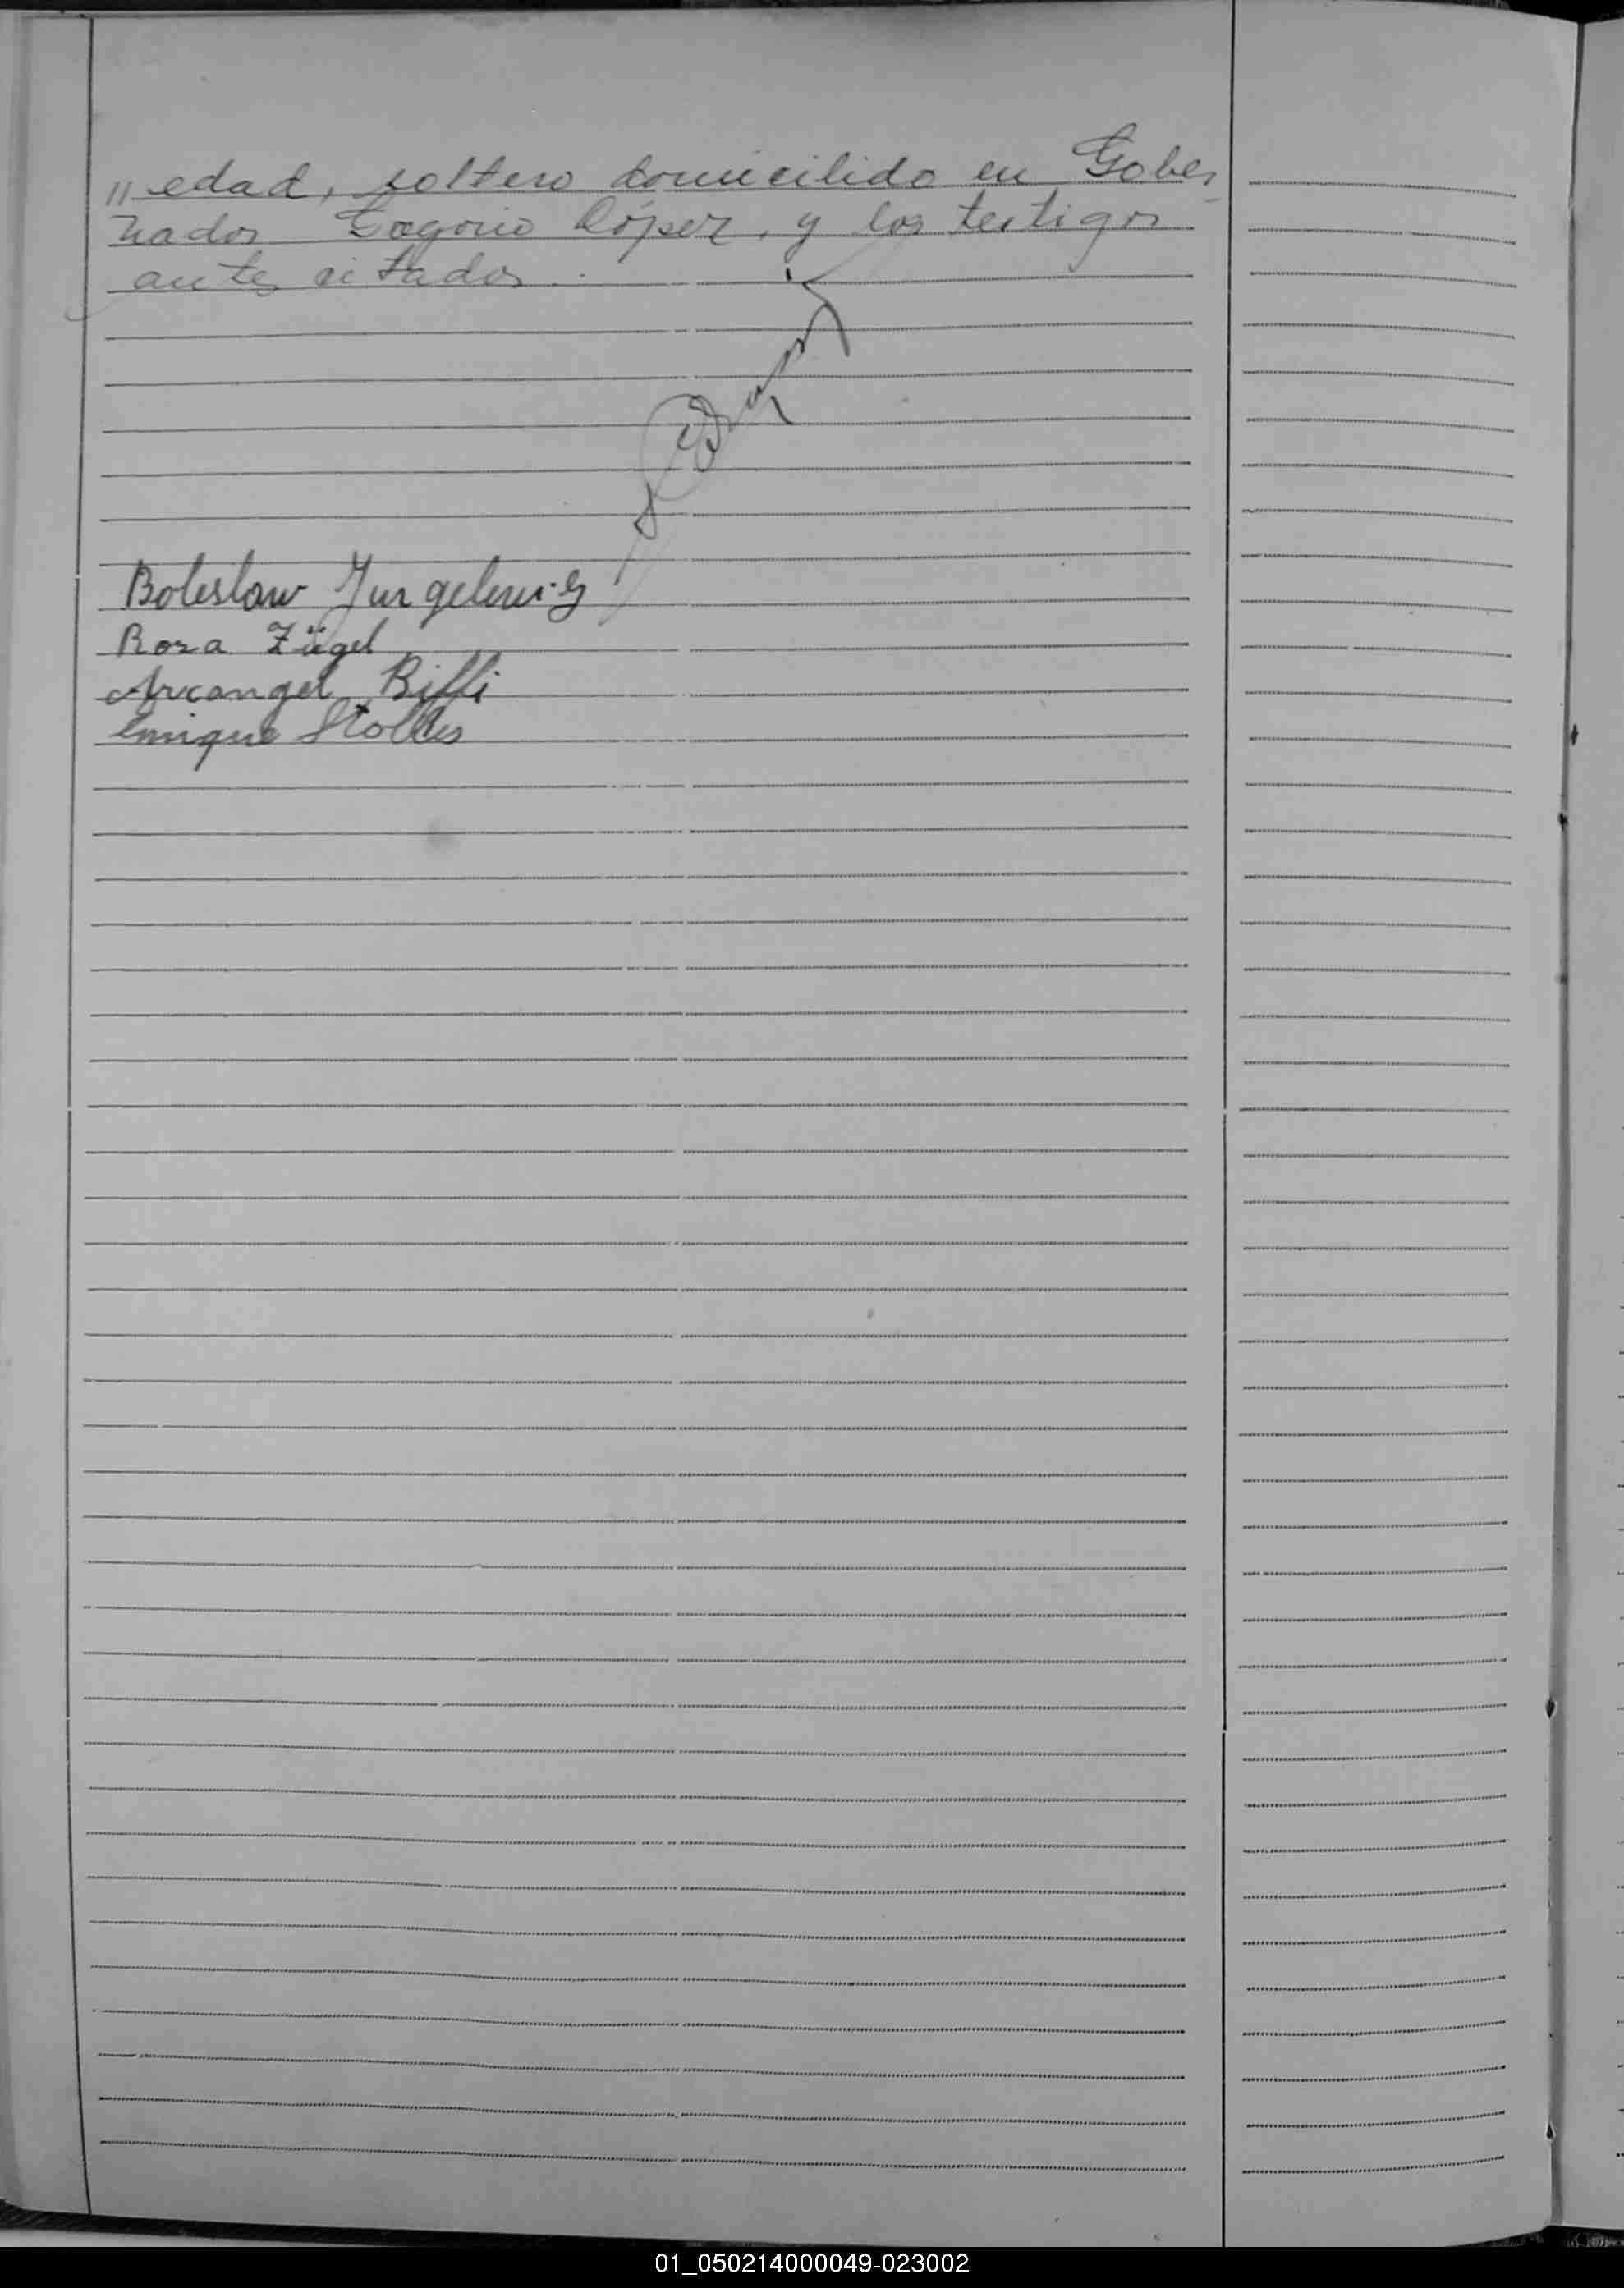 " edad, soltero domicilido en Gober-
nador Gregorio López, y los testigos
antes citados.
Boleslaw Jurgelewicz
Rosa Zügel
Arcangel Biffi
Enrique Stolles
01_050214000049-023002